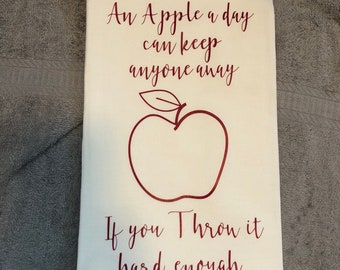 An Apple a day
can keep
anyone away
If you Throw it
hard enough